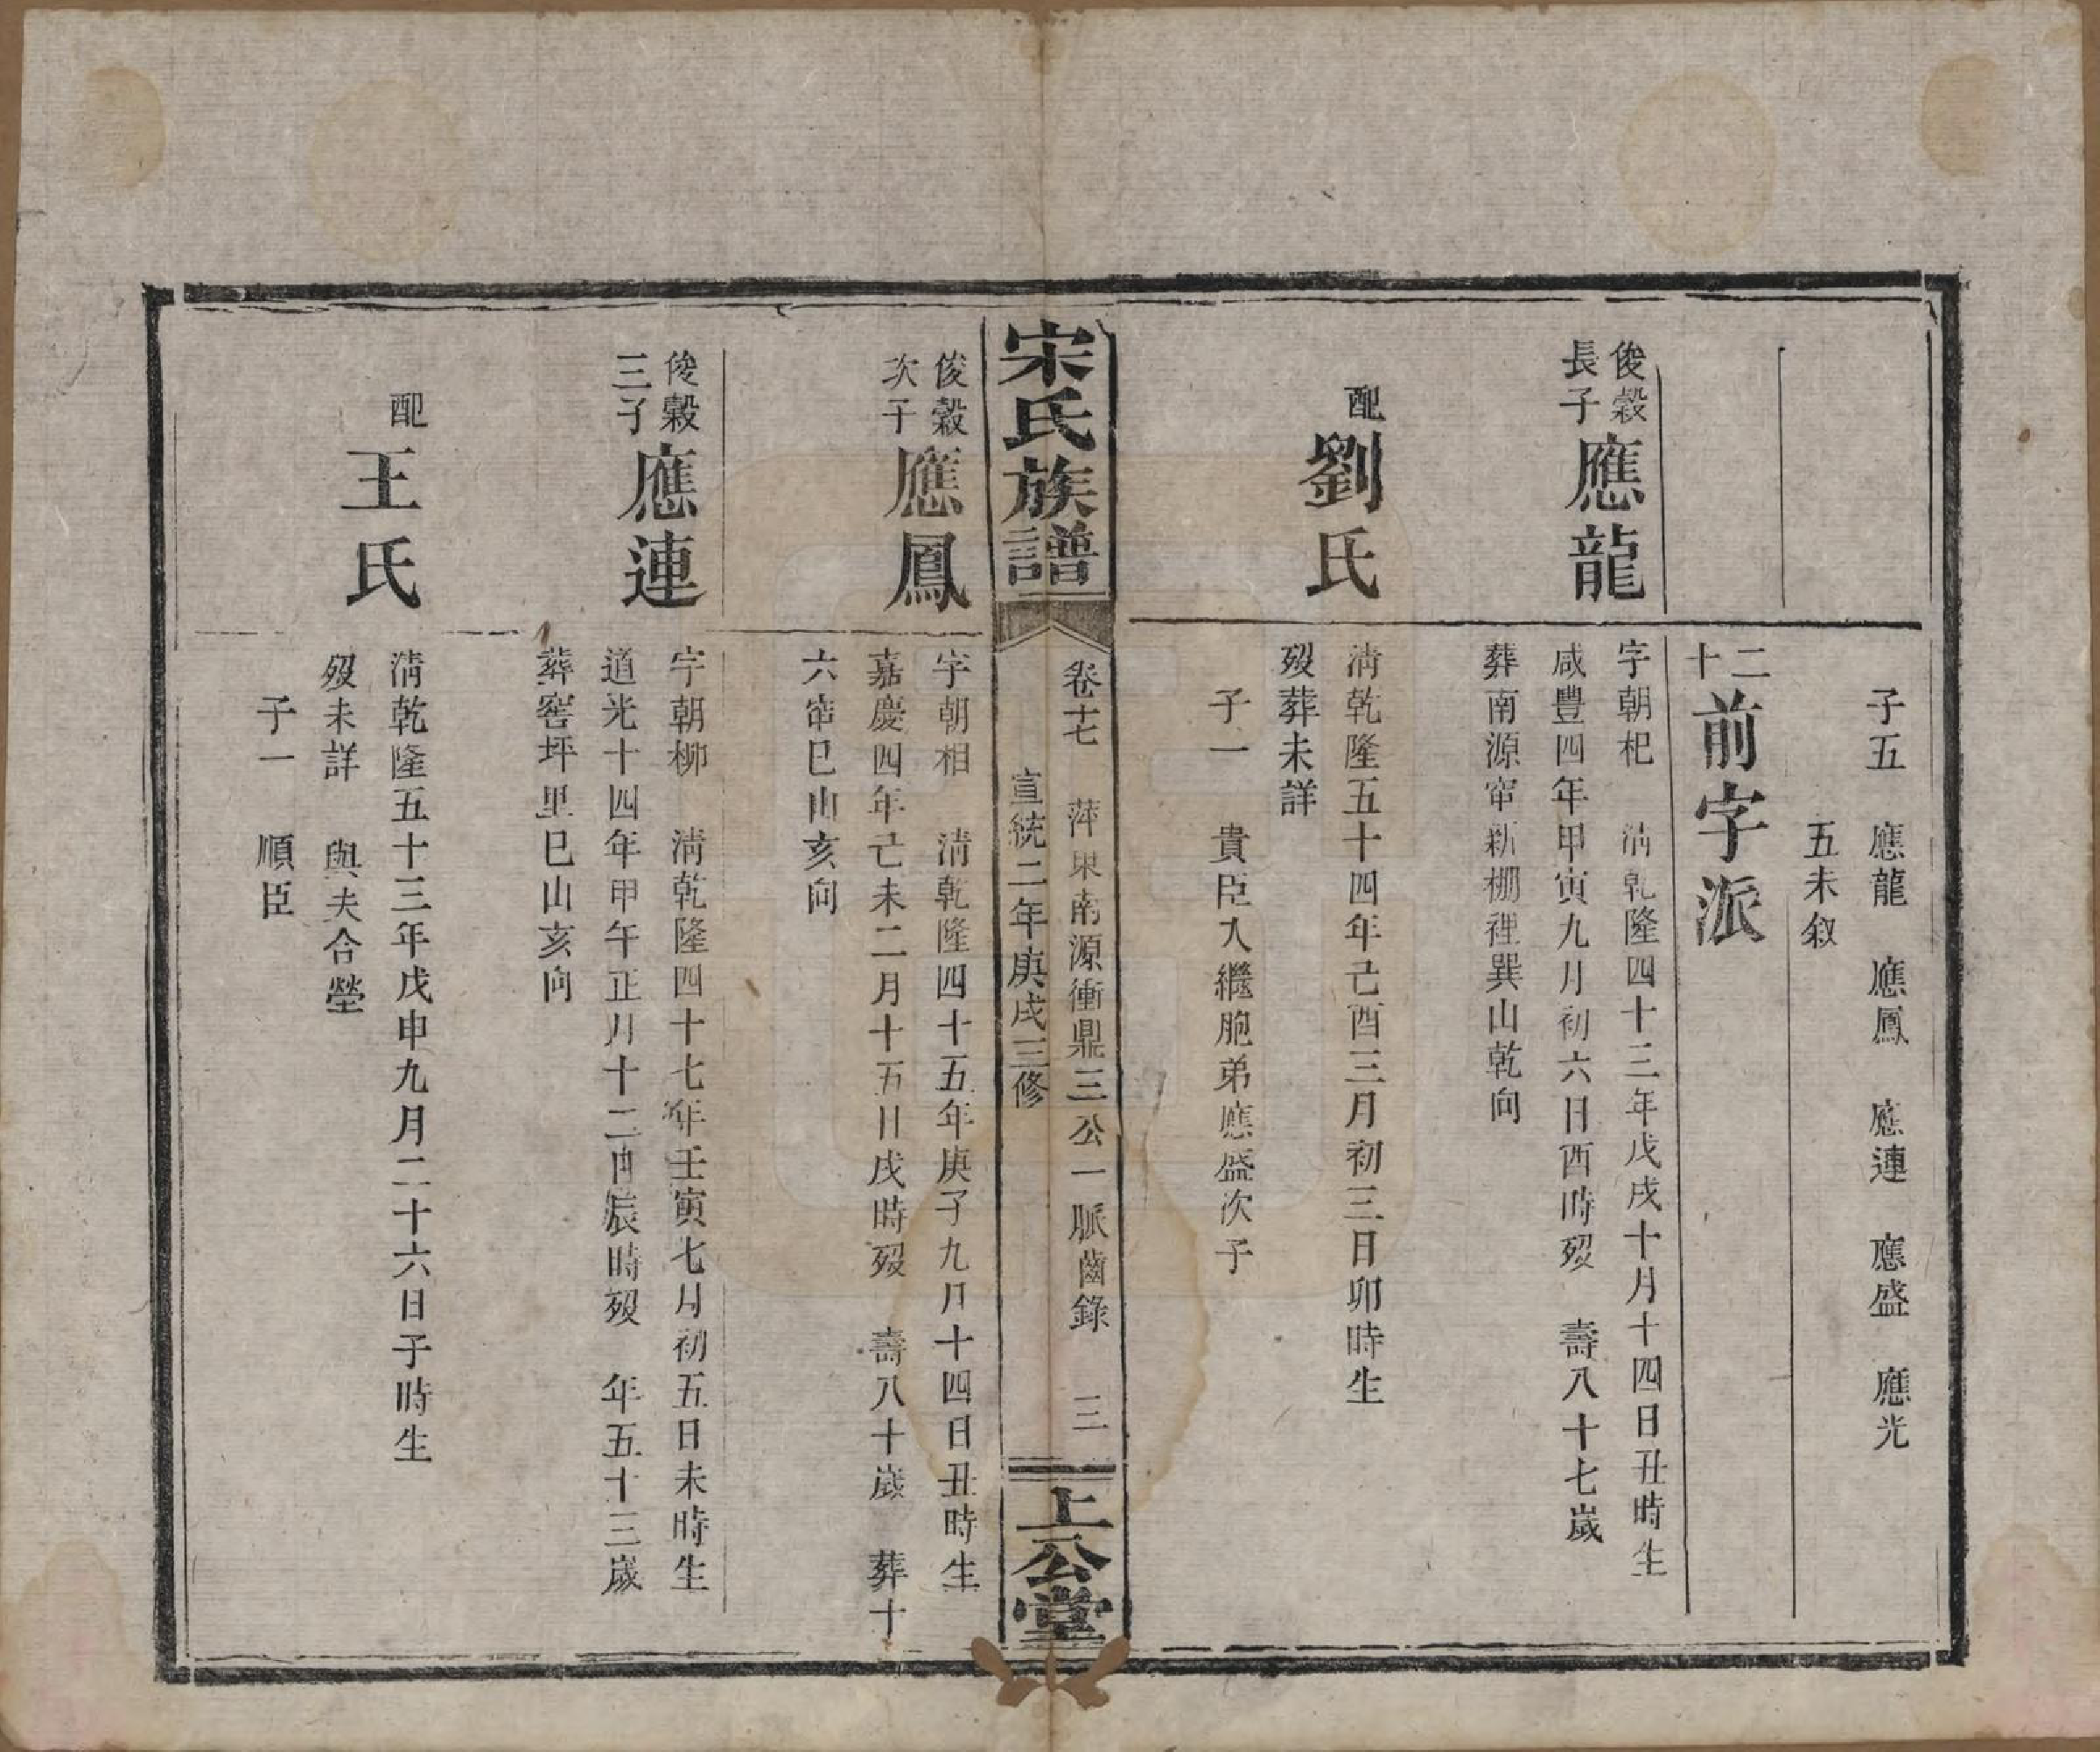 子五 應龍 應鳳 應連 應盛 應光
五未叙
十二前字派
俊穀長子應龍
字朝杞 清乾隆四十三年戊戌十月十四日丑時生
咸豐四年甲寅九月初六日酉時歿 壽八十七歲
葬南源窄新棚裡巽山乾向
配劉氏
清乾隆五十四年己酉三月初三日卯時生
歿葬未詳
子一 貴臣入繼胞弟應盛次子
宋氏族譜
卷十七 萍東南源衝鼎三公一脈齒錄 三
宣統二年庚戌三修
上公堂
俊穀次子應鳳
字朝相 清乾隆四十五年庚子九月十四日丑時生
嘉慶四年己未二月十五日戌時歿 壽八十歲 葬十
六窄巳山亥向
俊穀三子應連
字朝柳 清乾隆四十七年壬寅七月初五日未時生
道光十四年甲午正月十二日辰時歿 年五十三歲
葬窖坪里巳山亥向
配王氏
清乾隆五十三年戊申九月二十六日子時生
歿未詳 與夫合塋
子一 順臣